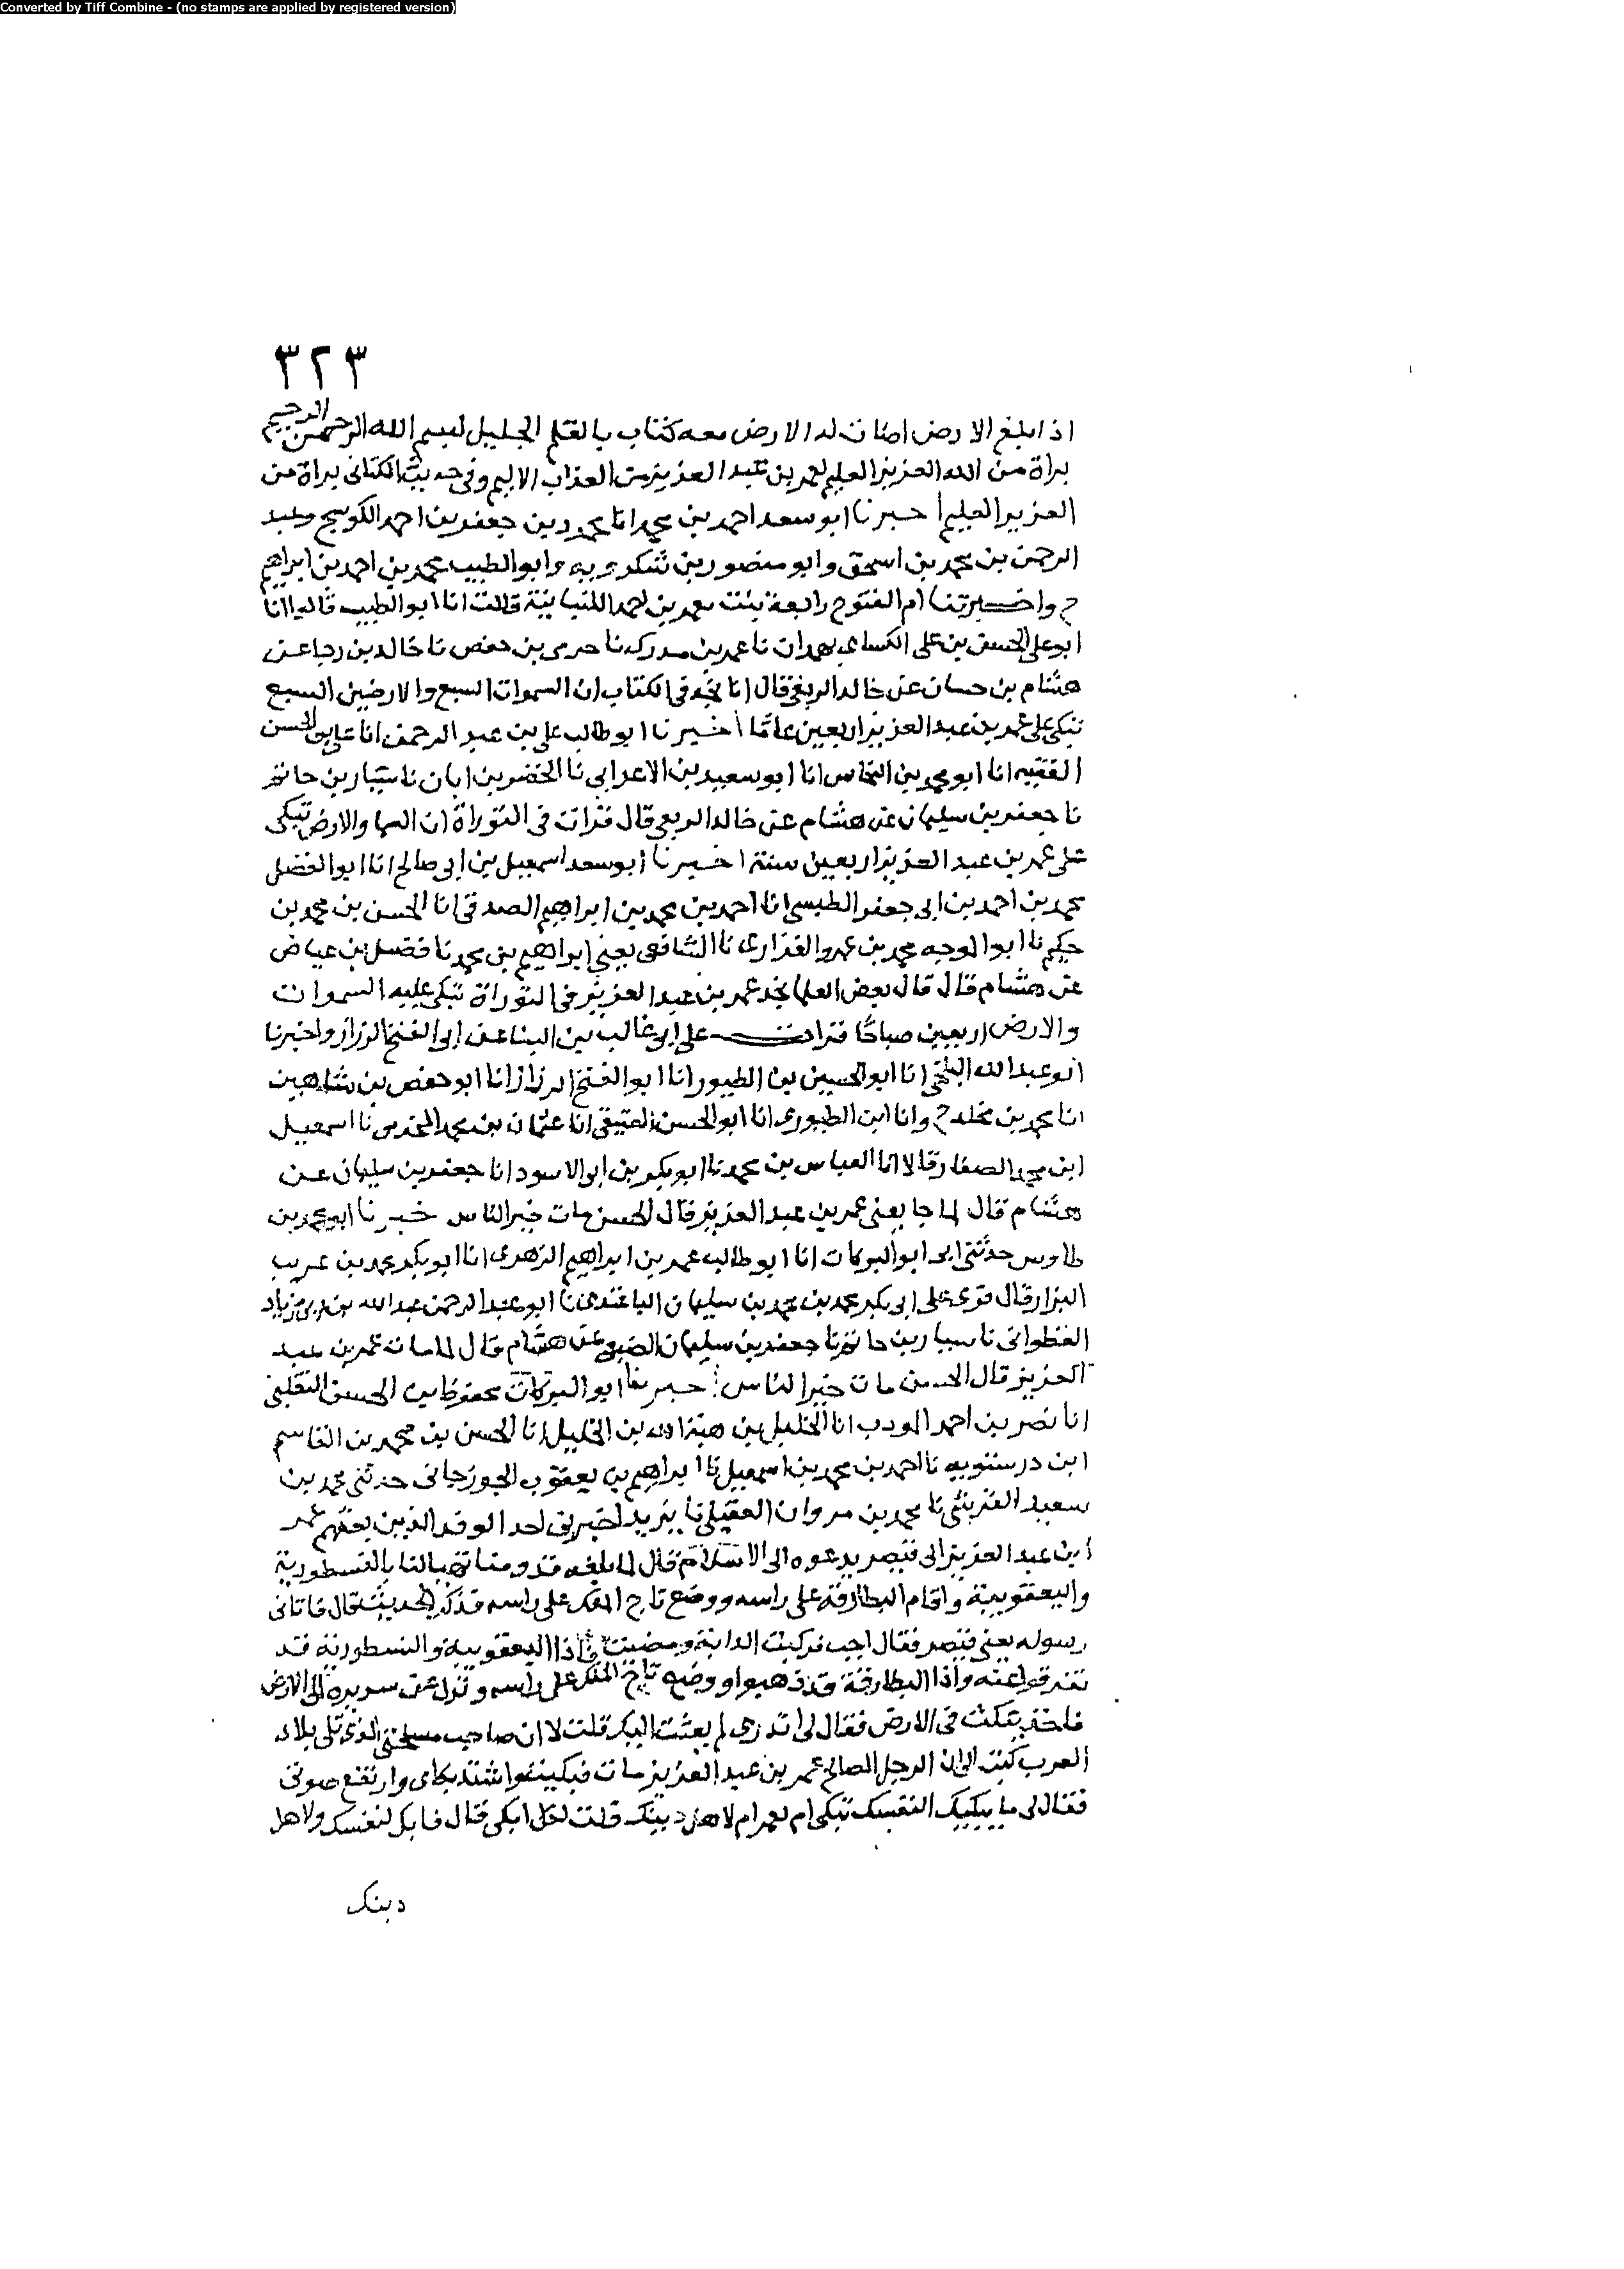 Converted by Tiff Combine - (no stamps are applied by registered version)
٣٢٣
اذا بلغ الارض اضات له الارض معه كتاب بالقلم الجليل لبسم الله الرحمن الرحيم
براة من الله العزيز العليم لعمر بن عبد العزيز من العذاب الاليم وفى حديث الكتانى براة من
العزيز العليم اخبرنا ابو سعد احمد بن محمد انا محمود بن جعفر بن احمد الكوسج وعبد
الرحمن بن محمد بن اسحق وابو منصور بن شكرويه وابو الطيب محمد بن احمد بن ابراهيم
ح واخبرتنا ام الفتوح رابعة بنت معمر بن احمد اللنبانية قالت انا ابو الطيب قالوا انا
ابو على الحسن بن على الكساى بهمدان نا عمر بن مدرك نا حرمى بن حفص نا خالد بن رجا عن
هشام بن حسان عن خالد الربعى قال انا نجد فى الكتاب ان السموات السبع والارضين السبع
تبكى على عمر بن عبد العزيز اربعين عاما اخبرنا ابو طالب على بن عبد الرحمن انا على ابو الحسن
الفقيه انا ابو محمد بن النحاس انا ابو سعيد بن الاعرابى نا الخضر بن ابان نا سيار بن حاتم
نا جعفر بن سليمان عن هشام عن خالد الربعى قال قرات فى التوراة ان السما والارض تبكى
على عمر بن عبد العزيز اربعين سنة اخبرنا ابو سعد اسمعيل بن ابى صالح انا ابو الفضل
محمد بن احمد بن ابى جعفر الطبسى انا احمد بن محمد بن ابراهيم الصدفى انا الحسن بن محمد بن
حكيم نا ابو الموجه محمد بن عمرو الفزارى نا الشافعى يعنى ابراهيم بن محمد نا فضيل بن عياض
عن هشام قال قال بعض العلما نجد عمر بن عبد العزيز فى التوراة تبكى عليه السموات
والارض اربعين صباحا قرات على ابى غالب بن البنا عن ابى الفتح الرزاز واخبرنا
ابو عبد الله البلخى انا ابو الحسين بن الطيور انا ابو الفتح الرزاز انا ابو حفص بن شاهين
انا محمد بن مخلد ح وانا ابن الطيورى انا ابو الحسن العتيقى انا عثمان بن محمد المخرمى نا اسمعيل
ابن محمد الصفار قالا انا العباس بن محمد نا ابو بكر بن ابى الاسود انا جعفر بن سليمان عن
هشام قال لما جا يعنى عمر بن عبد العزيز قال الحسن مات خير الناس خبرنا ابو محمد بن
طاوس حدثنى ابى ابو البركات انا ابو طالب عمر بن ابراهيم الزهرى انا ابو بكر محمد بن غريب
البزار قال قرى على ابى بكر محمد بن محمد بن سليمان الباغندى نا ابو عبد الرحمن عبد الله بن ابى زياد
القطوانى نا سيار بن حاتم نا جعفر بن سليمان الضبعى عن هشام قال لما مات عمر بن عبد
العزيز قال الحسن مات خير الناس اخبرنا ابو البركات محفوظ بن الحسن التغلبى
انا نصر بن احمد المودب انا الخليل بن هبة الله بن الخليل انا الحسن بن محمد بن القاسم
ابن درستويه نا احمد بن محمد بن اسمعيل نا ابراهيم بن يعقوب الجوزجانى حدثنى محمد بن
سعيد القرشى نا محمد بن مروان العقيلى نا يزيد اخبرنى احد الوفد الذين بعثهم عمر
ابن عبد العزيز الى قيصر يدعوه الى الاسلام قال لما بلغه قدومنا تهيا لنا بالنسطورية
واليعقوبية واقام البطارقة على راسه ووضع تاج الملك على راسه فذكر الحديث قال فاتانى
رسوله يعنى قيصر فقال اجب فركبت الدابة ومضيت فاذا اليعقوبية والنسطورية قد
تفرقوا عنه واذا البطارقة قد ذهبوا ووضع تاج الملك على راسه ونزل عن سريره الى الارض
فاخذ ينكت فى الارض فقال لى اتدرى لم بعثت اليك قلت لا ان صاحب مسلحتى الذى تلى بلاد
العرب كتب الى ان الرجل الصالح عمر بن عبد العزيز مات فبكيت واشتد بكاى وارتفع صوتى
فقال لى ما يبكيك النفسك تبكى ام لعمر ام لاهل دينك قلت لكل ابكى قال فابك لنفسك ولاهل
دينك